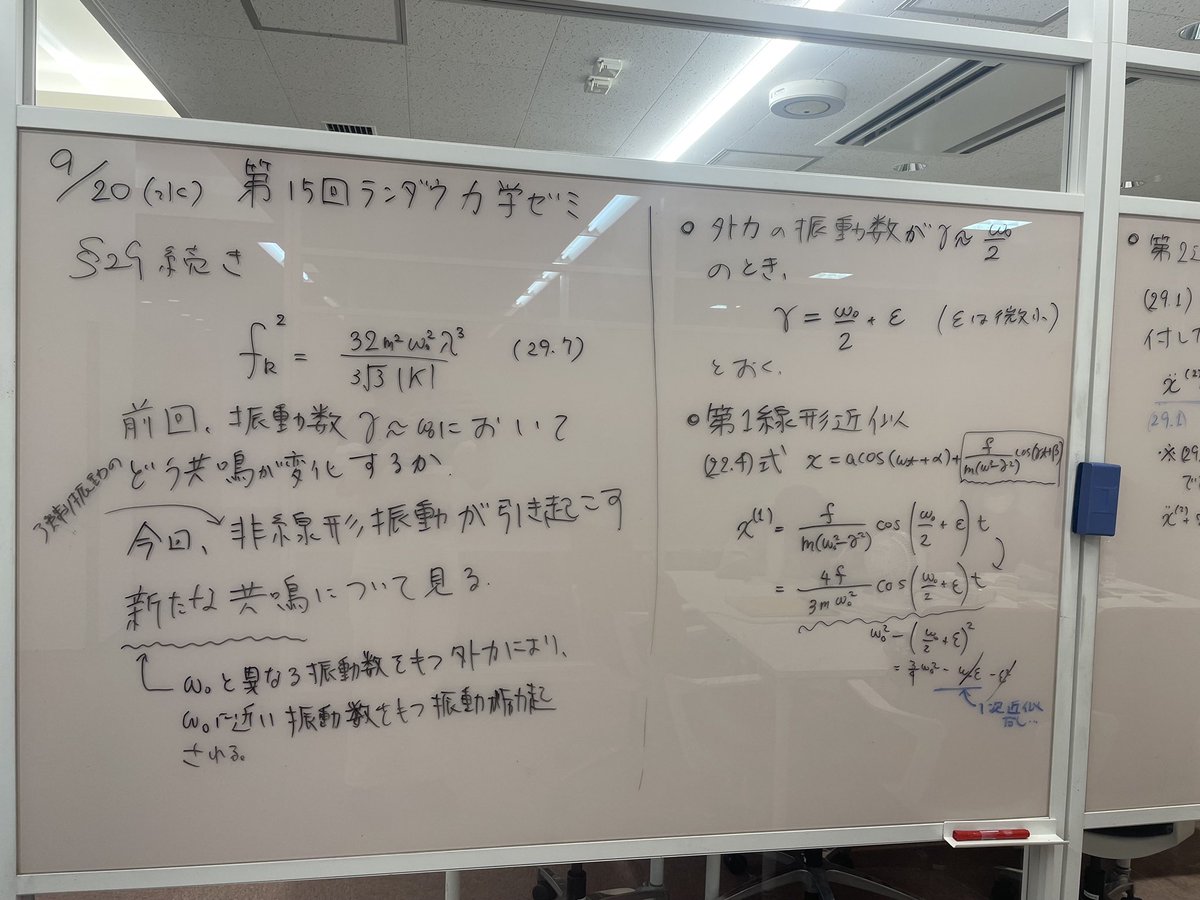 9/20(水) 第15回ランダウ力学ゼミ
§29続き
f_k² = 32m²ω₀²λ³ / 3√3 |K| (29.7)
前回、振動数γ≈ω₀において
どう共鳴が変化するか.
今回、非線形振動が引き起こす
新たな共鳴について見る.
ω₀と異なる振動数をもつ外力により、
ω₀に近い振動数をもつ振動が励起
される。
• 外力の振動数がγ≈ω₀/2
のとき、
γ = ω₀/2 + ε (εは微小)
とおく.
• 第1線形近似
(22.4)式 x = a cos(ωt+α) + f/m(ω²-γ²) cos(γt+β)
x⁽¹⁾ = f/m(ω₀²-γ²) cos(ω₀/2 + ε)t
= 4f/3mω₀² cos(ω₀/2 + ε)t
ω₀² - (ω₀/2 + ε)²
= 3/4 ω₀² - ω₀ε - ε²
1次近似
• 第2
(29.1)
付して
ẍ⁽²⁾
(29.1)
※(29.
で
ẍ⁽²⁾ +